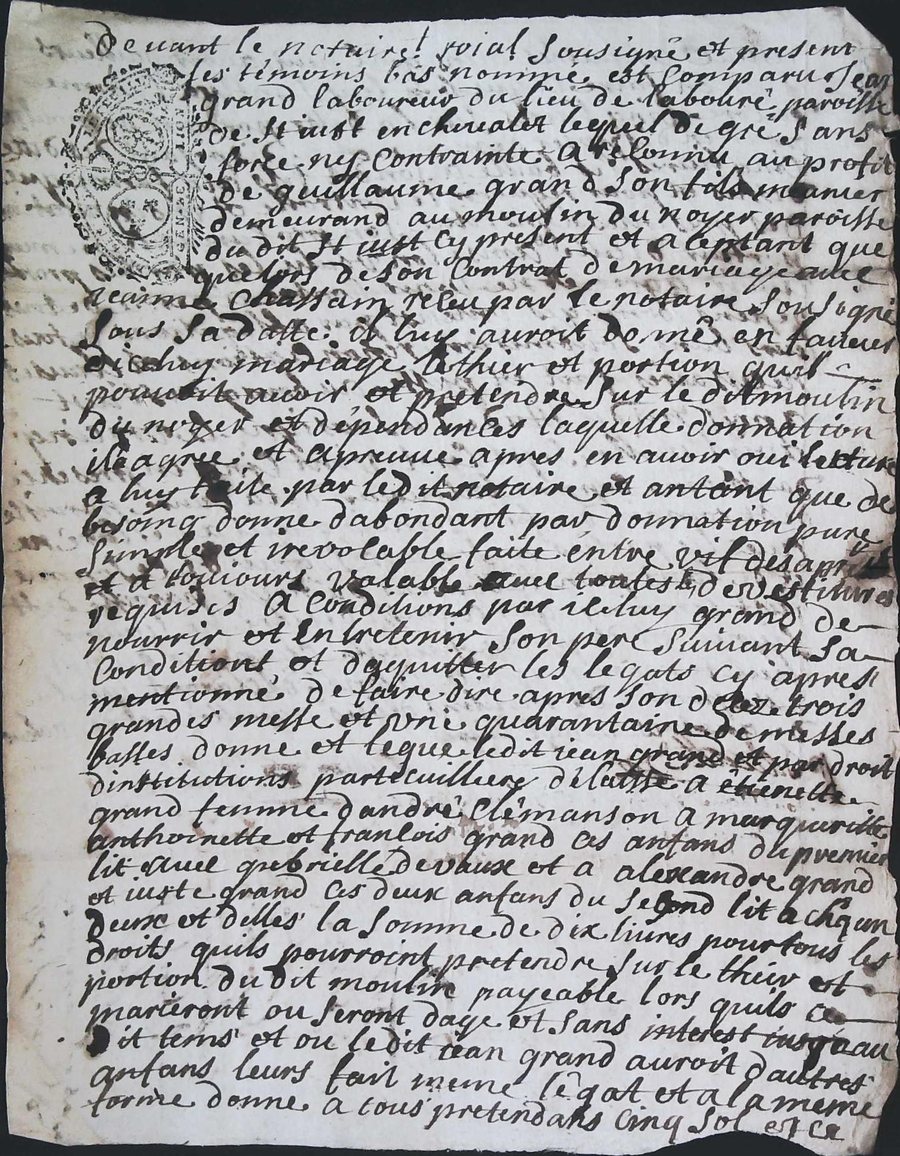 Devant le notaire roial sousigné et present
les témoins bas nommé est comparu Jean
grand laboureur du lieu de labouré paroisse
de st iust en chevalet lequel de gré sans
force ny contrainte a reconnu au profit
de guillaume grand son fils meunier
demeurand au moulin du noyer paroisse
du dit st iust cy present et aceptant que
que lors de son contrat de mariage avec
jeanne Chassain receu par le notaire sousigné
sous sa datte il luy auroit donné en faveur
diceluy mariage le thier et portion quil
pouvoit avoir et pretendre sur le dit moulin
du noyer et dépendances laquelle donnation
il agrée et apreuve apres en avoir oui lecture
a luy faite par le dit notaire et antant que de
besoing donne dabondant par donnation pure
simple et irevocable faite entre vif des apresent
et a toujours valable avec toutes devestitures
requises a conditions par iceluy grand de
nourrir et entretenir son pere suivant sa
condition et daquitter les legats cy apres
mentionné de faire dire apres son decez trois
grandes messe et une quarantaine de messes
basses donne et legue ledit iean grand et par droit
dinstitutions particulliere délaisse a étienette
grand femme dandré Clémanson a margueritte
anthoinette et francois grand ces anfans du premier
lit avec gabrielle devaux et a alexandre grand
et iuste grand ces deux anfans du second lit a chqun
deux et delles la somme de dix livres pour tous les
droits quils pourroint pretendre sur le their et
portion du dit moulin payeable lors quils ce
marieront ou seront dage et sans interest iusqu au
dit tems et ou le dit iean grand auroit dautres
anfans leurs fait meme légat et a la meme
forme donne a tous pretendans cinq sol et ce